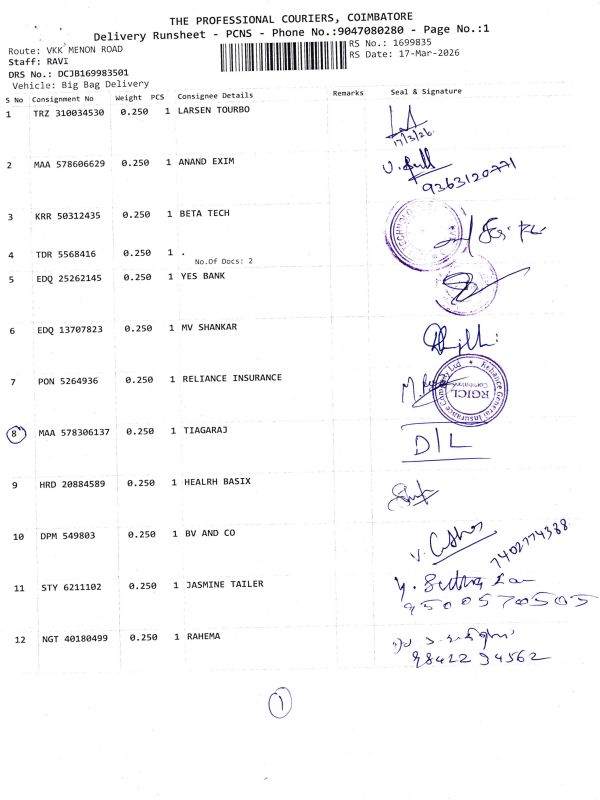 THE PROFESSIONAL COURIERS, COIMBATORE
Delivery Runsheet - PCNS - Phone No.:9047080280 - Page No.:1
Route: VKK MENON ROAD
RS No.: 1699835
Staff: RAVI
RS Date: 17-Mar-2026
DRS No.: DCJB169983501
Vehicle: Big Bag Delivery
S No Consignment No Weight PCS Consignee Details Remarks Seal & Signature
1 TRZ 310034530 0.250 1 LARSEN TOURBO
17/3/26
2 MAA 578606629 0.250 1 ANAND EXIM
9363120771
3 KRR 50312435 0.250 1 BETA TECH
4 TDR 5568416 0.250 1 .
No.Of Docs: 2
5 EDQ 25262145 0.250 1 YES BANK
6 EDQ 13707823 0.250 1 MV SHANKAR
7 PON 5264936 0.250 1 RELIANCE INSURANCE
Reliance General Insurance Company Ltd
RGICL
Coimbatore
8 MAA 578306137 0.250 1 TIAGARAJ
D/L
9 HRD 20884589 0.250 1 HEALRH BASIX
10 DPM 549803 0.250 1 BV AND CO
7402774388
11 STY 6211102 0.250 1 JASMINE TAILER
9500570505
12 NGT 40180499 0.250 1 RAHEMA
9842234562
1